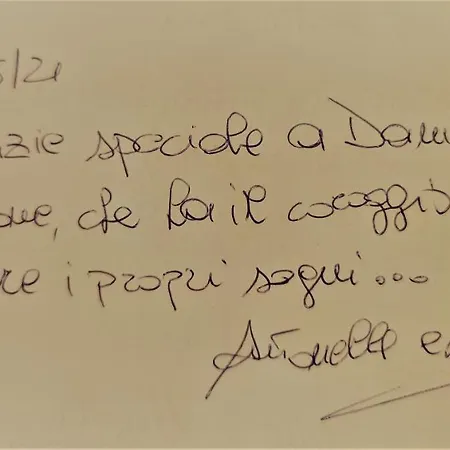 5/21
zie speciale a Dani
one, che ha il coraggio
re i propri sogni...
Antonella e